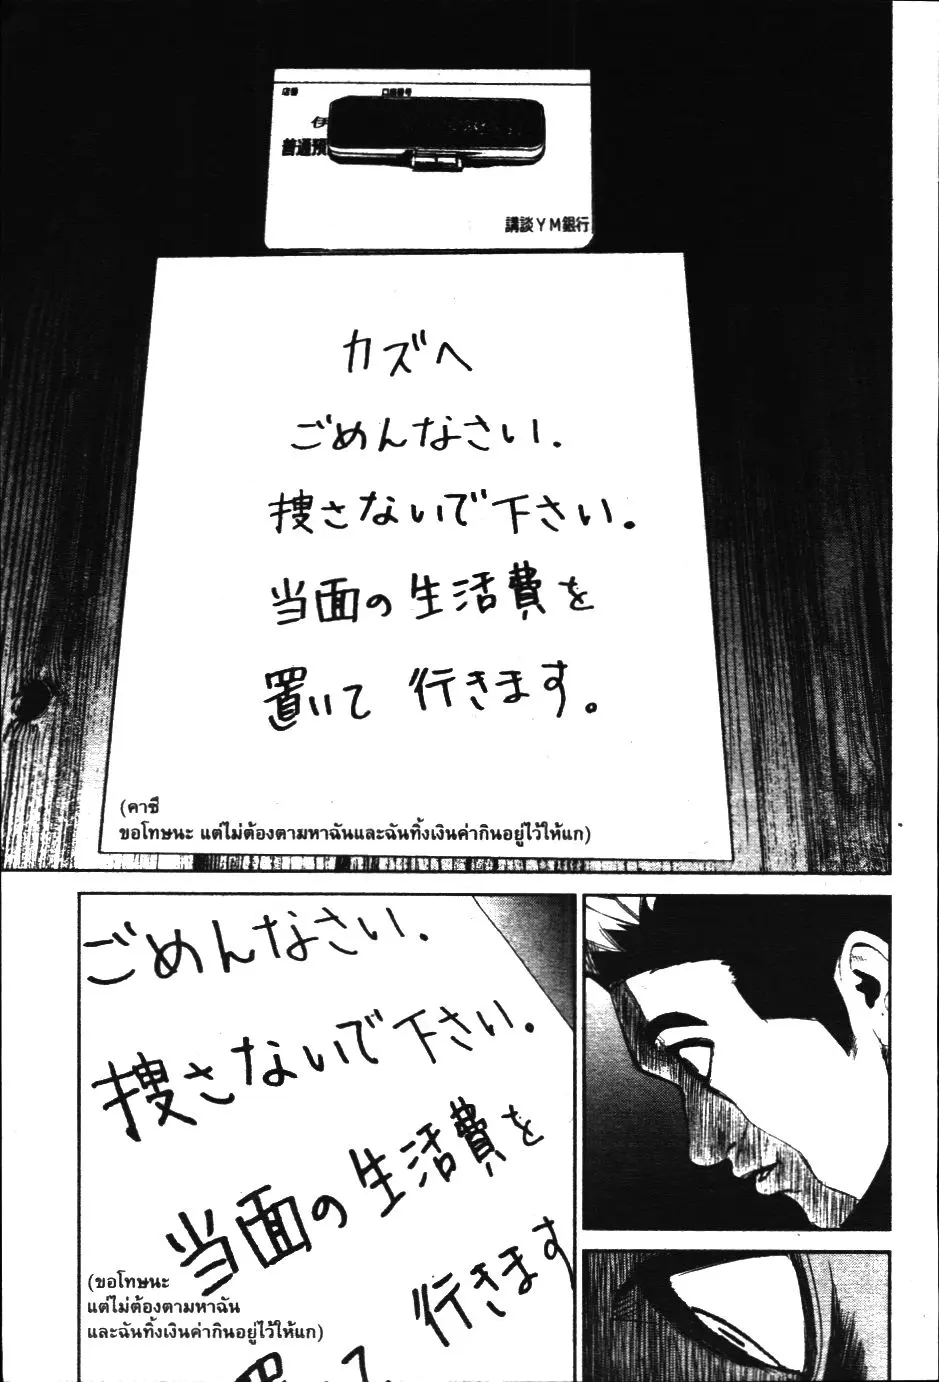 店番 口座番号
伊
普通預
講談YM銀行
カズへ
ごめんなさい.
捜さないで下さい.
当面の生活費を
置いて行きます。
(คาซึ
ขอโทษนะ แต่ไม่ต้องตามหาฉันและฉันทิ้งเงินค่ากินอยู่ไว้ให้แก)
ごめんなさい.
捜さないで下さい.
当面の生活費を
行きます
(ขอโทษนะ
แต่ไม่ต้องตามหาฉัน
และฉันทิ้งเงินค่ากินอยู่ไว้ให้แก)